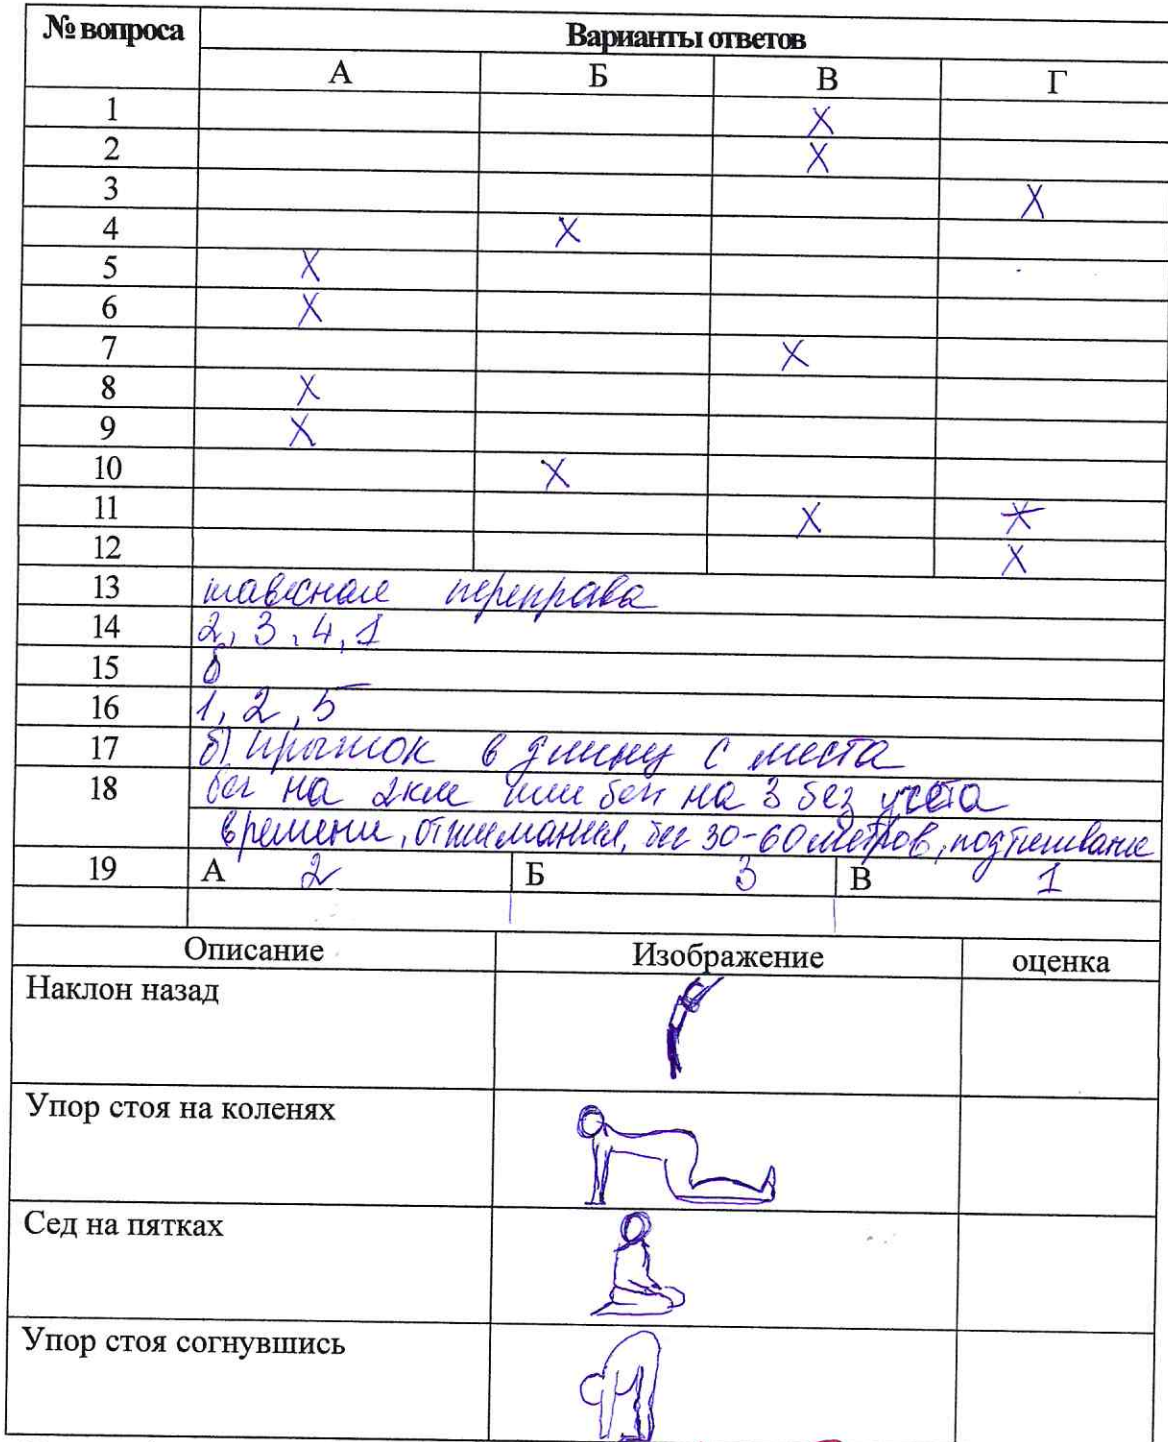 № вопроса Варианты ответов
А Б В Г
1 X
2 X
3 X
4 X
5 X
6 X
7 X
8 X
9 X
10 X
11 X X
12 X
13 переправа
14 2, 3, 4, 1
15 б
16 1, 2, 5
17 б) прыжок в длину с места
18 бег на 2км или бег на 3 без учёта
времени, отжимания, бег 30-60 метров, подтягивание
19 А 2 Б 3 В 1
Описание Изображение оценка
Наклон назад
Упор стоя на коленях
Сед на пятках
Упор стоя согнувшись